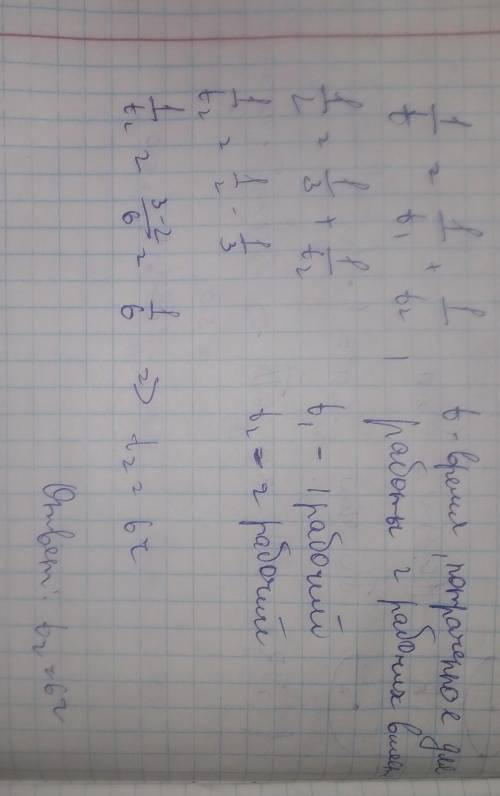 1/t = 1/t₁ + 1/t₂ ,
t - время, потраченное для
работы 2 рабочих вмес
1/2 = 1/3 + 1/t₂
t₁ - 1 рабочий
1/t₂ = 1/2 - 1/3
t₂ - 2 рабочий
1/t₂ = 3-2/6 = 1/6 => t₂ = 6ч
Ответ: t₂ = 6ч